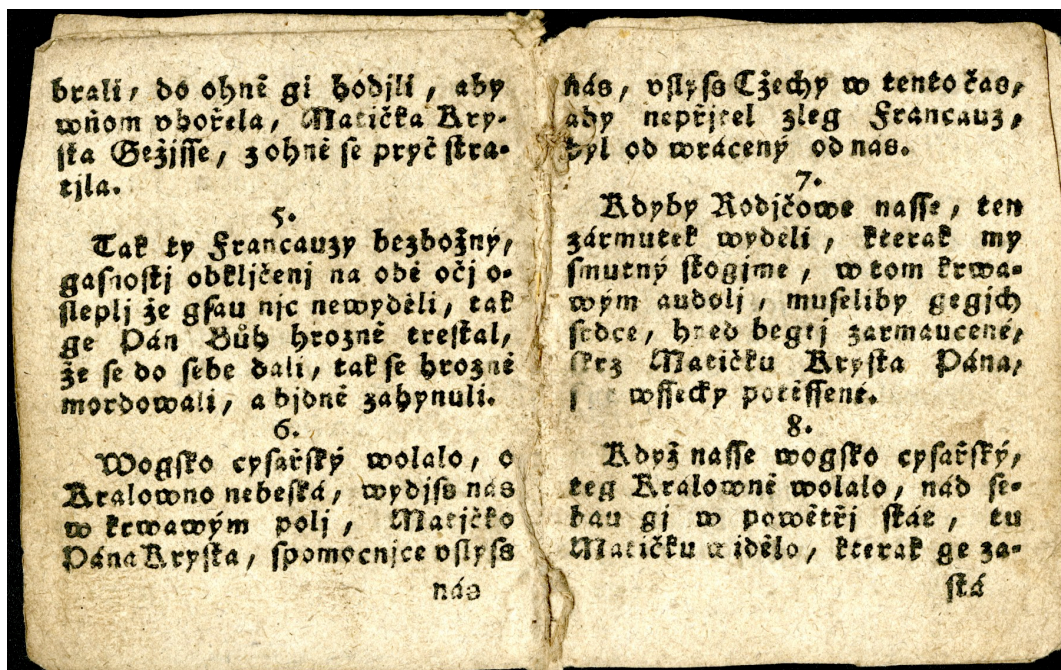 brali, do ohně gi hodjli, aby
wňom vhořela, Matička Kry-
sta Gežjsse, z ohně se pryč stra-
tjla.
5.
Tak ty Francauzy bezbožný,
gasnostj obkljčenj na obě očj o-
sleplj že gsau njc newyděli, tak
ge Pán Bůh hrozně trestal,
že se do sebe dali, tak se hrozně
mordowali, a bjdně zahynuli.
6.
Wogsko cysařský wolalo, o
Kralowno nebeská, wydjss nás
w krwawým polj, Matjčko
Pána Krysta, spomocnjce vslyss
nás
nás, vslyss Cžechy w tento čas,
aby nepřjtel zleg Francauz,
byl od wrácený od nas.
7.
Kdyby Rodjčowe nasse, ten
zármutek wydeli, kterak my
smutný stogjme, w tom krwa-
wým audolj, museliby gegjch
srdce, hned begtj zarmaucené,
skrz Matičku Krysta Pána,
wssecky potěssené.
8.
Když nasse wogsko cysařský,
teg Kralowně wolalo, nád se-
bau gj w powětřj stát, tu
Matičku widělo, kterak ge za-
ská